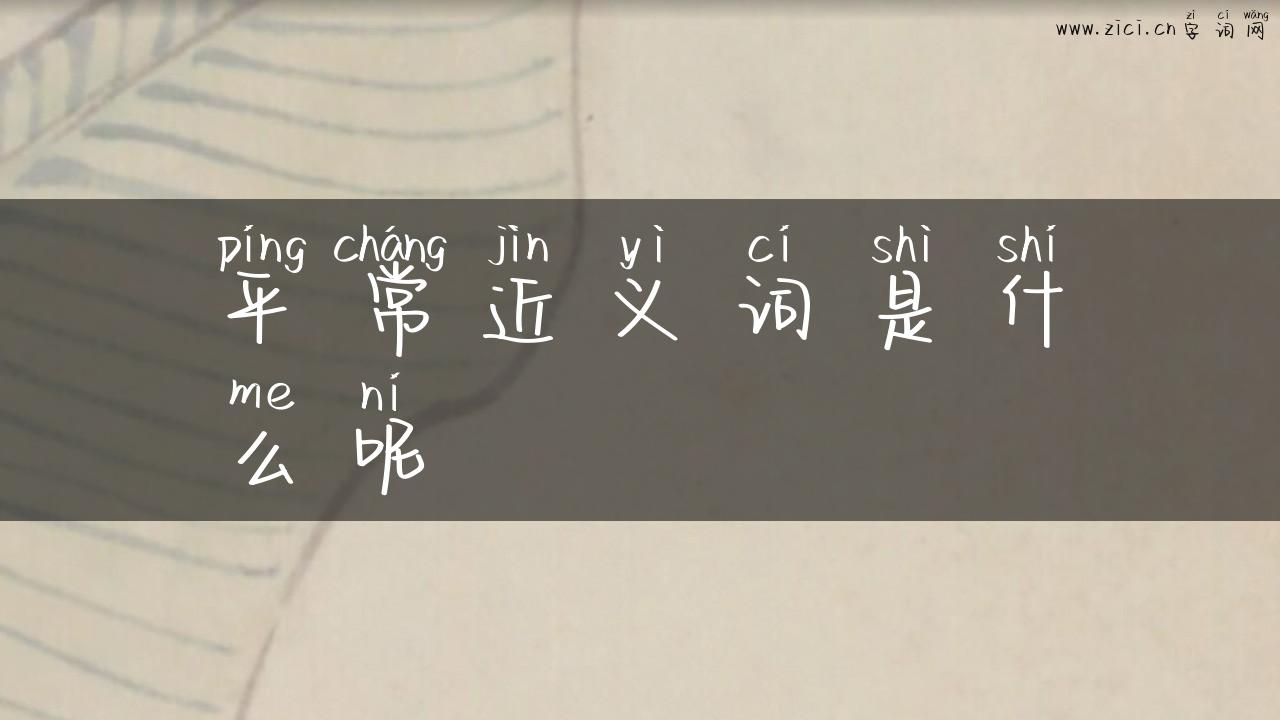 zì cí wǎng
www.zici.cn 字词网
píng cháng jìn yì cí shì shí
平常近义词是什
me ní
么呢